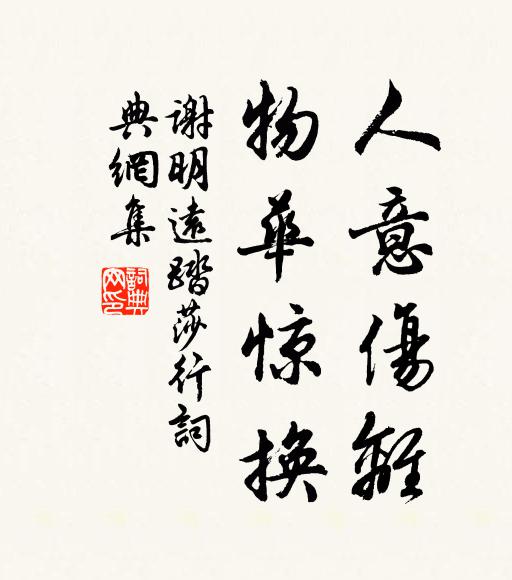 人意傷離
物華惊換
謝明遠踏莎行詞
典網集
詞典網印